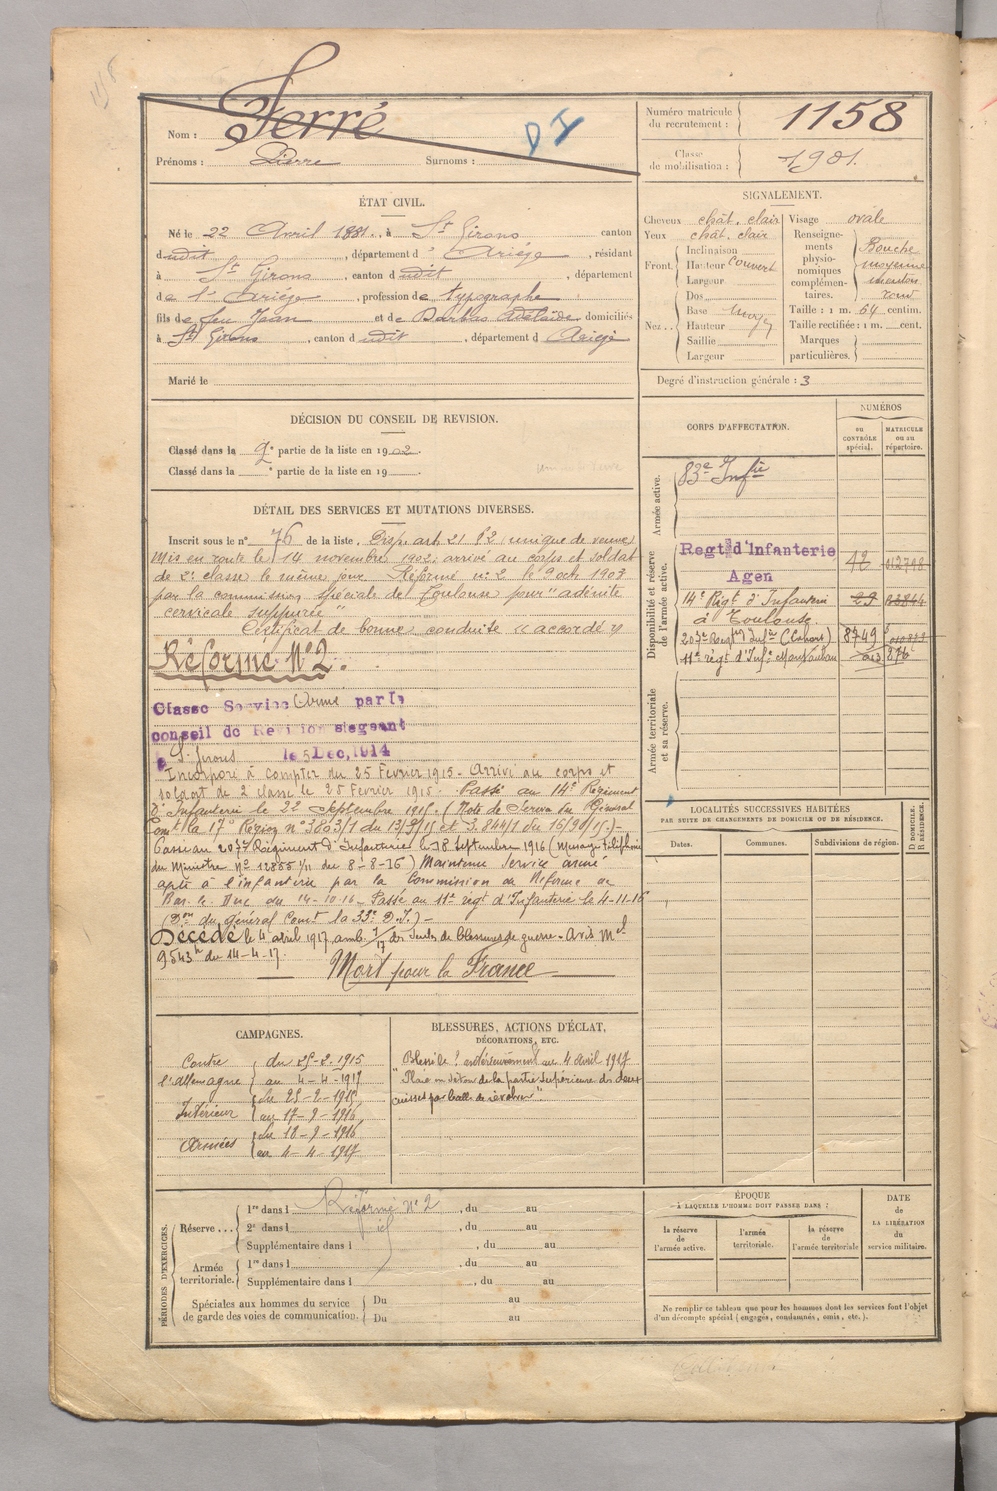 Nom : Ferré
Prénoms : Pierre Surnoms :
D I
Numéro matricule du recrutement : 1158
Classe de mobilisation : 1901.
ÉTAT CIVIL.
Né le 22 Avril 1881, à St Girons canton
dudit, département d' Ariège, résidant
à St Girons, canton dudit, département
de l'Ariège, profession de typographe
fils de feu Jean et de Barbas Adélaïde domiciliés
à St Girons, canton dudit, département d Ariège
Marié le
SIGNALEMENT.
Cheveux chât. clair
Yeux chât. clair
Front. Inclinaison
Hauteur couvert
Largeur
Nez .. Dos
Base moy
Hauteur
Saillie
Largeur
Visage ovale
Renseignements physionomiques complémentaires. Bouche
moyenne
menton
rond
Taille : 1 m. 64 centim.
Taille rectifiée : 1 m. cent.
Marques particulières.
Degré d'instruction générale : 3
DÉCISION DU CONSEIL DE REVISION.
Classé dans la 2e partie de la liste en 1902.
Classé dans la e partie de la liste en 19 .
DÉTAIL DES SERVICES ET MUTATIONS DIVERSES.
Inscrit sous le n° 76 de la liste. Disp. art. 21 § 2 (unique de veuve)
Mis en route le 14 novembre 1902, arrivé au corps et soldat
de 2e classe le même jour Réformé n° 2 le 9 oct 1903
par la commission spéciale de Toulouse pour "adénite
cervicale suppurée"
Certificat de bonne conduite "accordé"
Réforme N° 2.
Classé Service Armé par le
conseil de Révision siegeant
à St Girons le 5 Dec, 1914
Incorporé à compter du 25 Février 1915 - Arrivé au corps et
soldat de 2 classe le 25 Février 1915 - Passé au 14e Régiment
d'Infanterie le 22 Septembre 1915. (Note de Service du Général
Comt la 17e Région n° 3863/1 du 13/9/15 et 3.844/1 du ) -
Passé au 203e Régiment d'Infanterie le 18 Septembre 1916 (Message téléphoné
du Ministre n° 12855 1/11 du 8-8-16) Maintenu Service armé
apte à l'infanterie par la Commission de Réforme de
Bar-le-Duc du 14-10-16 - Passé au 11e régt d'Infanterie le 4-11-16
(Don du général Comt la 33e D.I.) -
Décédé le 4 avril 1917 amb. 7/17 de blessures de guerre - Avis Mel
9543 du 14-4-17.
Mort pour la France
CORPS D'AFFECTATION.
NUMÉROS
au CONTRÔLE spécial.
MATRICULE ou au répertoire.
Armée active.
83e Infie
Disponibilité et réserve de l'armée active.
Regt d'Infanterie 12 012748
Agen
14e Régt d'Infanterie
à Toulouse.
203e Régt Infie (Cahors) 8749
11e régt d'Infie Montauban 276
Armée territoriale et sa réserve.
LOCALITÉS SUCCESSIVES HABITÉES
PAR SUITE DE CHANGEMENTS DE DOMICILE OU DE RÉSIDENCE.
Dates. Communes. Subdivisions de région. D DOMICILE. R RÉSIDENCE.
CAMPAGNES.
Contre l'Allemagne du 25-2-1915
au 4-4-1917
Intérieur du 25-2-1915
au 17-9-1916
Armées du 18-9-1916
au 4-4-1917
BLESSURES, ACTIONS D'ÉCLAT,
DÉCORATIONS, ETC.
Blessé le ? antérieurement au 4 avril 1917
"Plaie en séton de la partie supérieure des deux
cuisses par balle de révolver".
PÉRIODES D'EXERCICES.
Réserve ... 1re dans l Réformé n° 2, du au
2e dans l , du au
Supplémentaire dans l , du au
Armée territoriale. 1re dans l , du au
Supplémentaire dans l , du au
Spéciales aux hommes du service de garde des voies de communication. Du au
Du au
ÉPOQUE
À LAQUELLE L'HOMME DOIT PASSER DANS :
la réserve de l'armée active.
l'armée territoriale.
la réserve de l'armée territoriale
DATE DE LA LIBÉRATION du service militaire.
Ne remplir ce tableau que pour les hommes dont les services font l'objet
d'un décompte spécial (engagés, condamnés, omis, etc.).